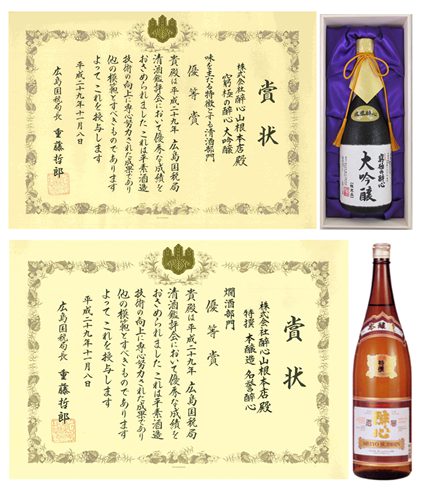 賞状
株式会社醉心山根本店殿
究極の醉心 大吟醸
味を主たる特徴とする清酒部門
優等賞
貴殿は平成二十九年 広島国税局
清酒鑑評会において優秀な成績を
おさめられました これは平素酒造
技術の向上に専心努力された成果であり
他の模範とすべきものであります
よって これを授与します
平成二十九年十一月八日
広島国税局長 重藤哲郎
究極の醉心
大吟醸
賞状
株式会社醉心山根本店殿
特撰 本醸造 名誉醉心
燗酒部門
優等賞
貴殿は平成二十九年 広島国税局
清酒鑑評会において優秀な成績を
おさめられました これは平素酒造
技術の向上に専心努力された成果であり
他の模範とすべきものであります
よって これを授与します
平成二十九年十一月八日
広島国税局長 重藤哲郎
醉心